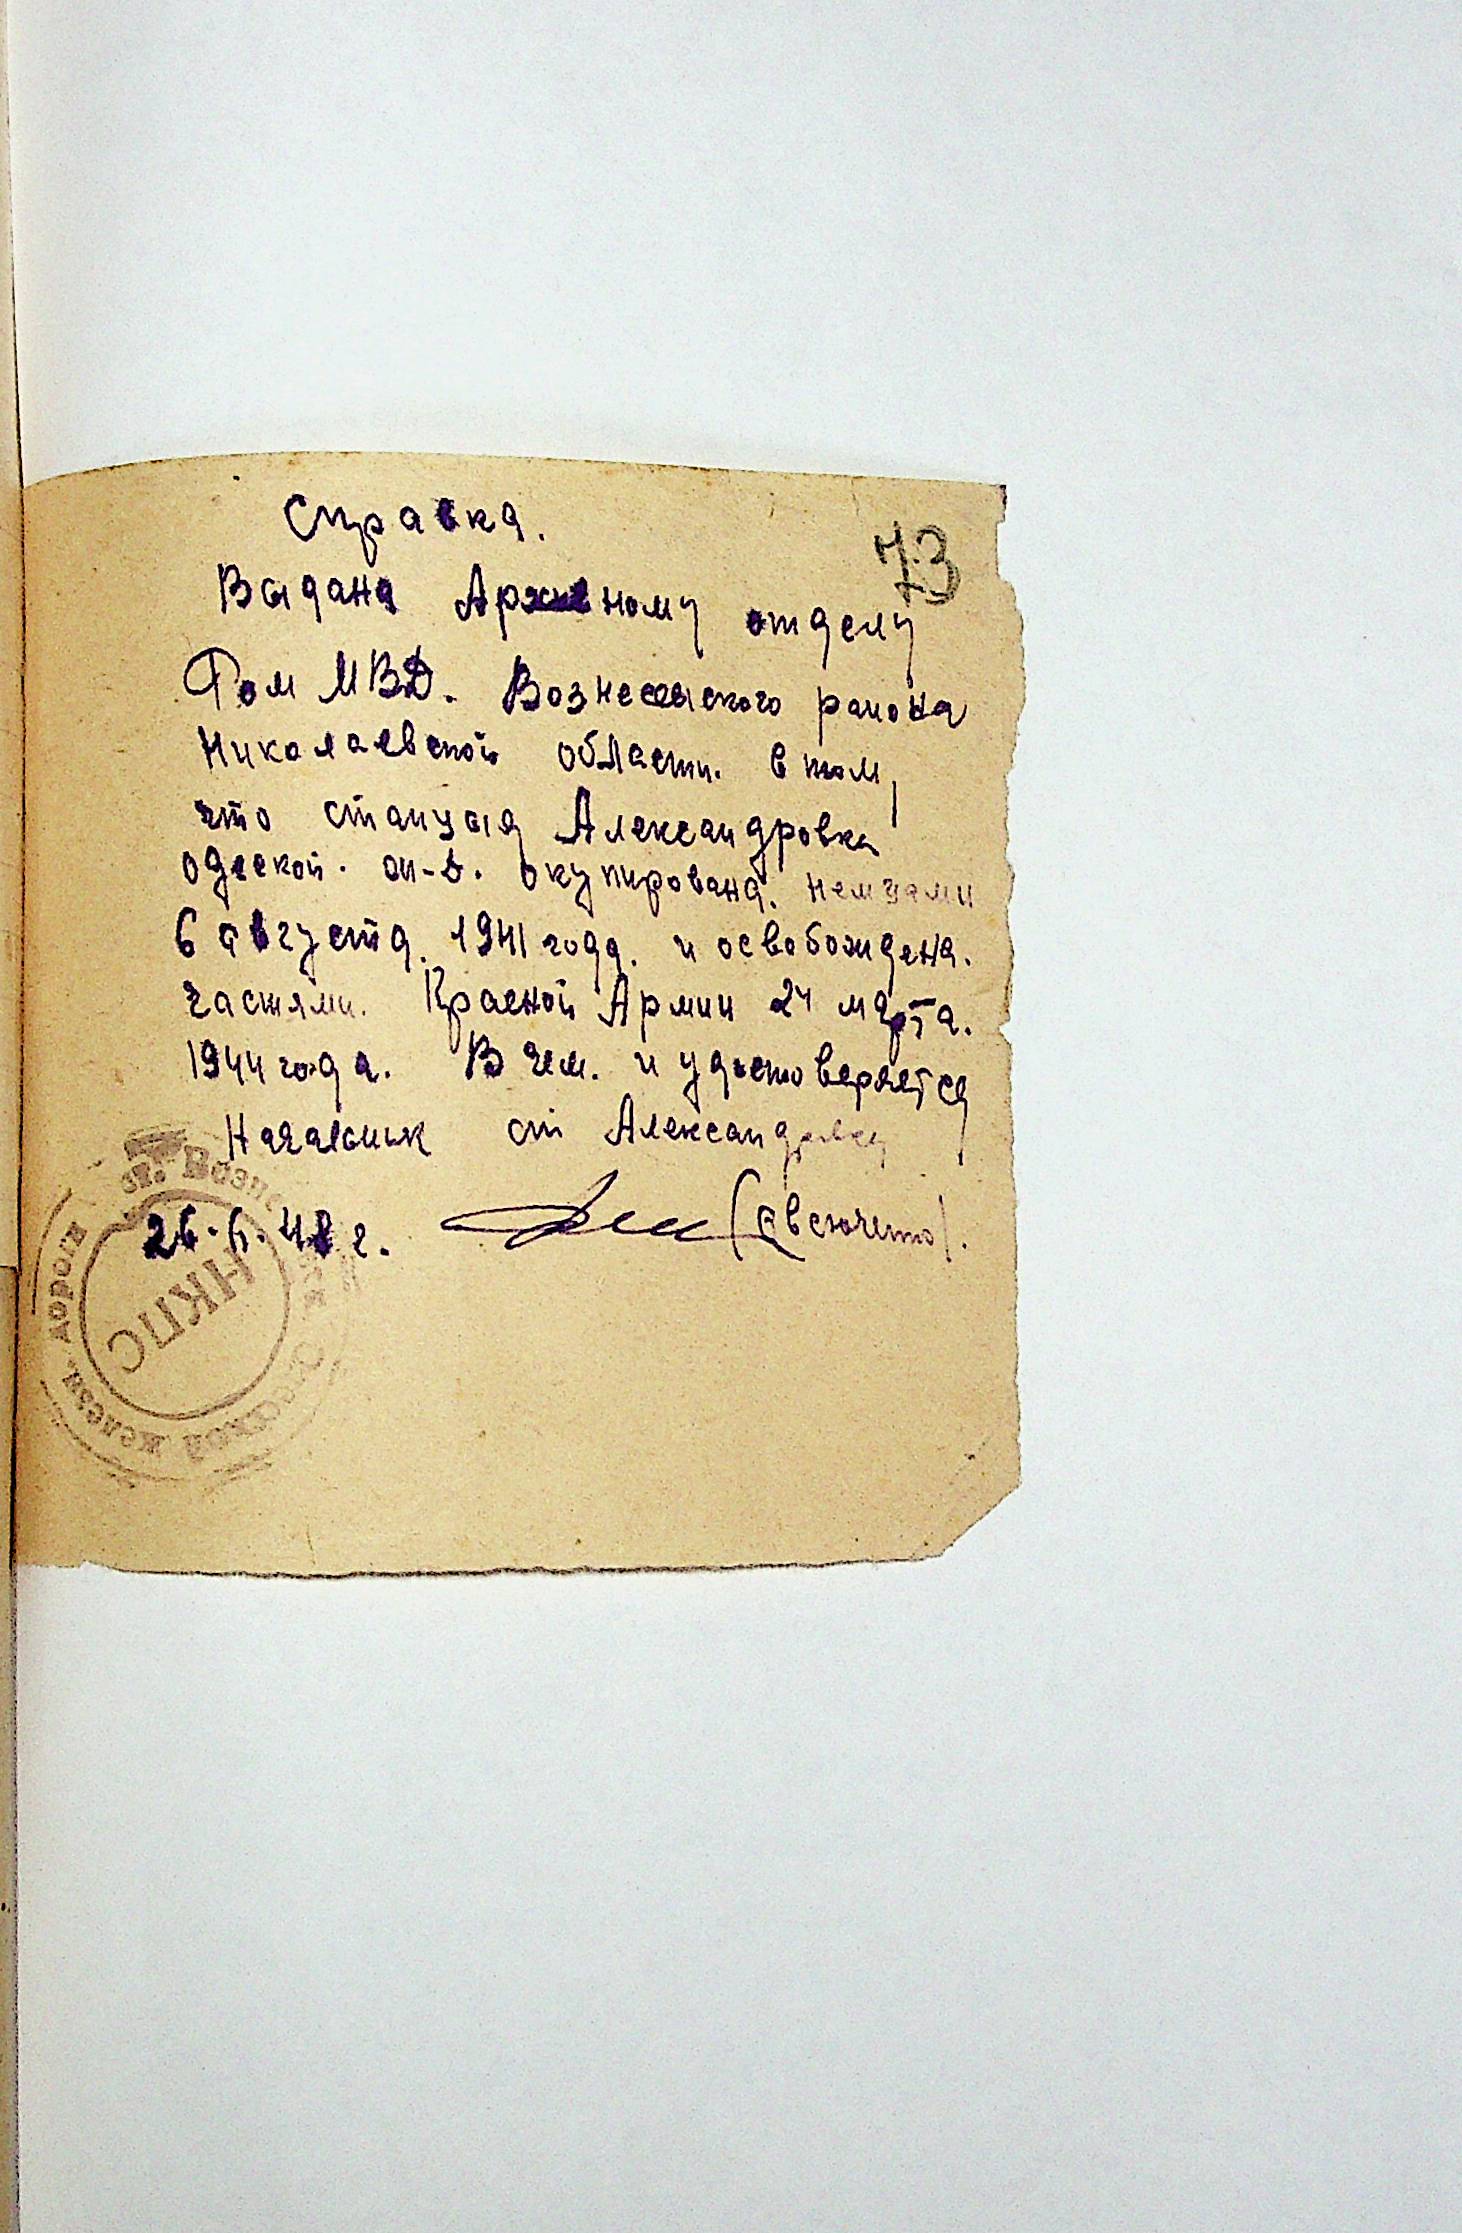 Справка.
73
Выдана Архивному отделу
Ром МВД. Вознесенского района
Николаевской области. в том,
что станцыя Александровка
одеской. окупирована. немцами
6 августа. 1941 года. и освобождена.
частями. Красной Армии 24 марта.
1944 года. В чем. и удостоверяется
Начальник ст Александровка
26.6.48 г.
ст. Возне
Одесской железн. дороги
НКПС